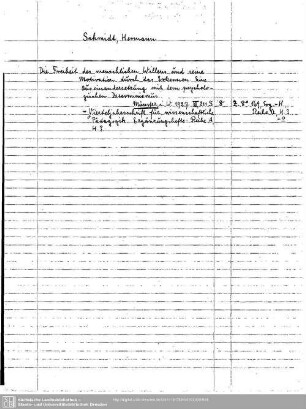 Schmidt, Hermann
Die Freiheit des menschlichen Willens und seine
Motivation durch das Erkennen. Eine
Auseinandersetzung mit dem psycholo-
gischen Determinismus.
Münster i. W. 1927. 8° Z. 8°
= Vierteljahrsschrift für wissenschaftliche Reihe A, H. 3
Pädagogik. Ergänzungshefte. Reihe A,
H. 3
Sächsische Landesbibliothek -
Staats- und Universitätsbibliothek Dresden